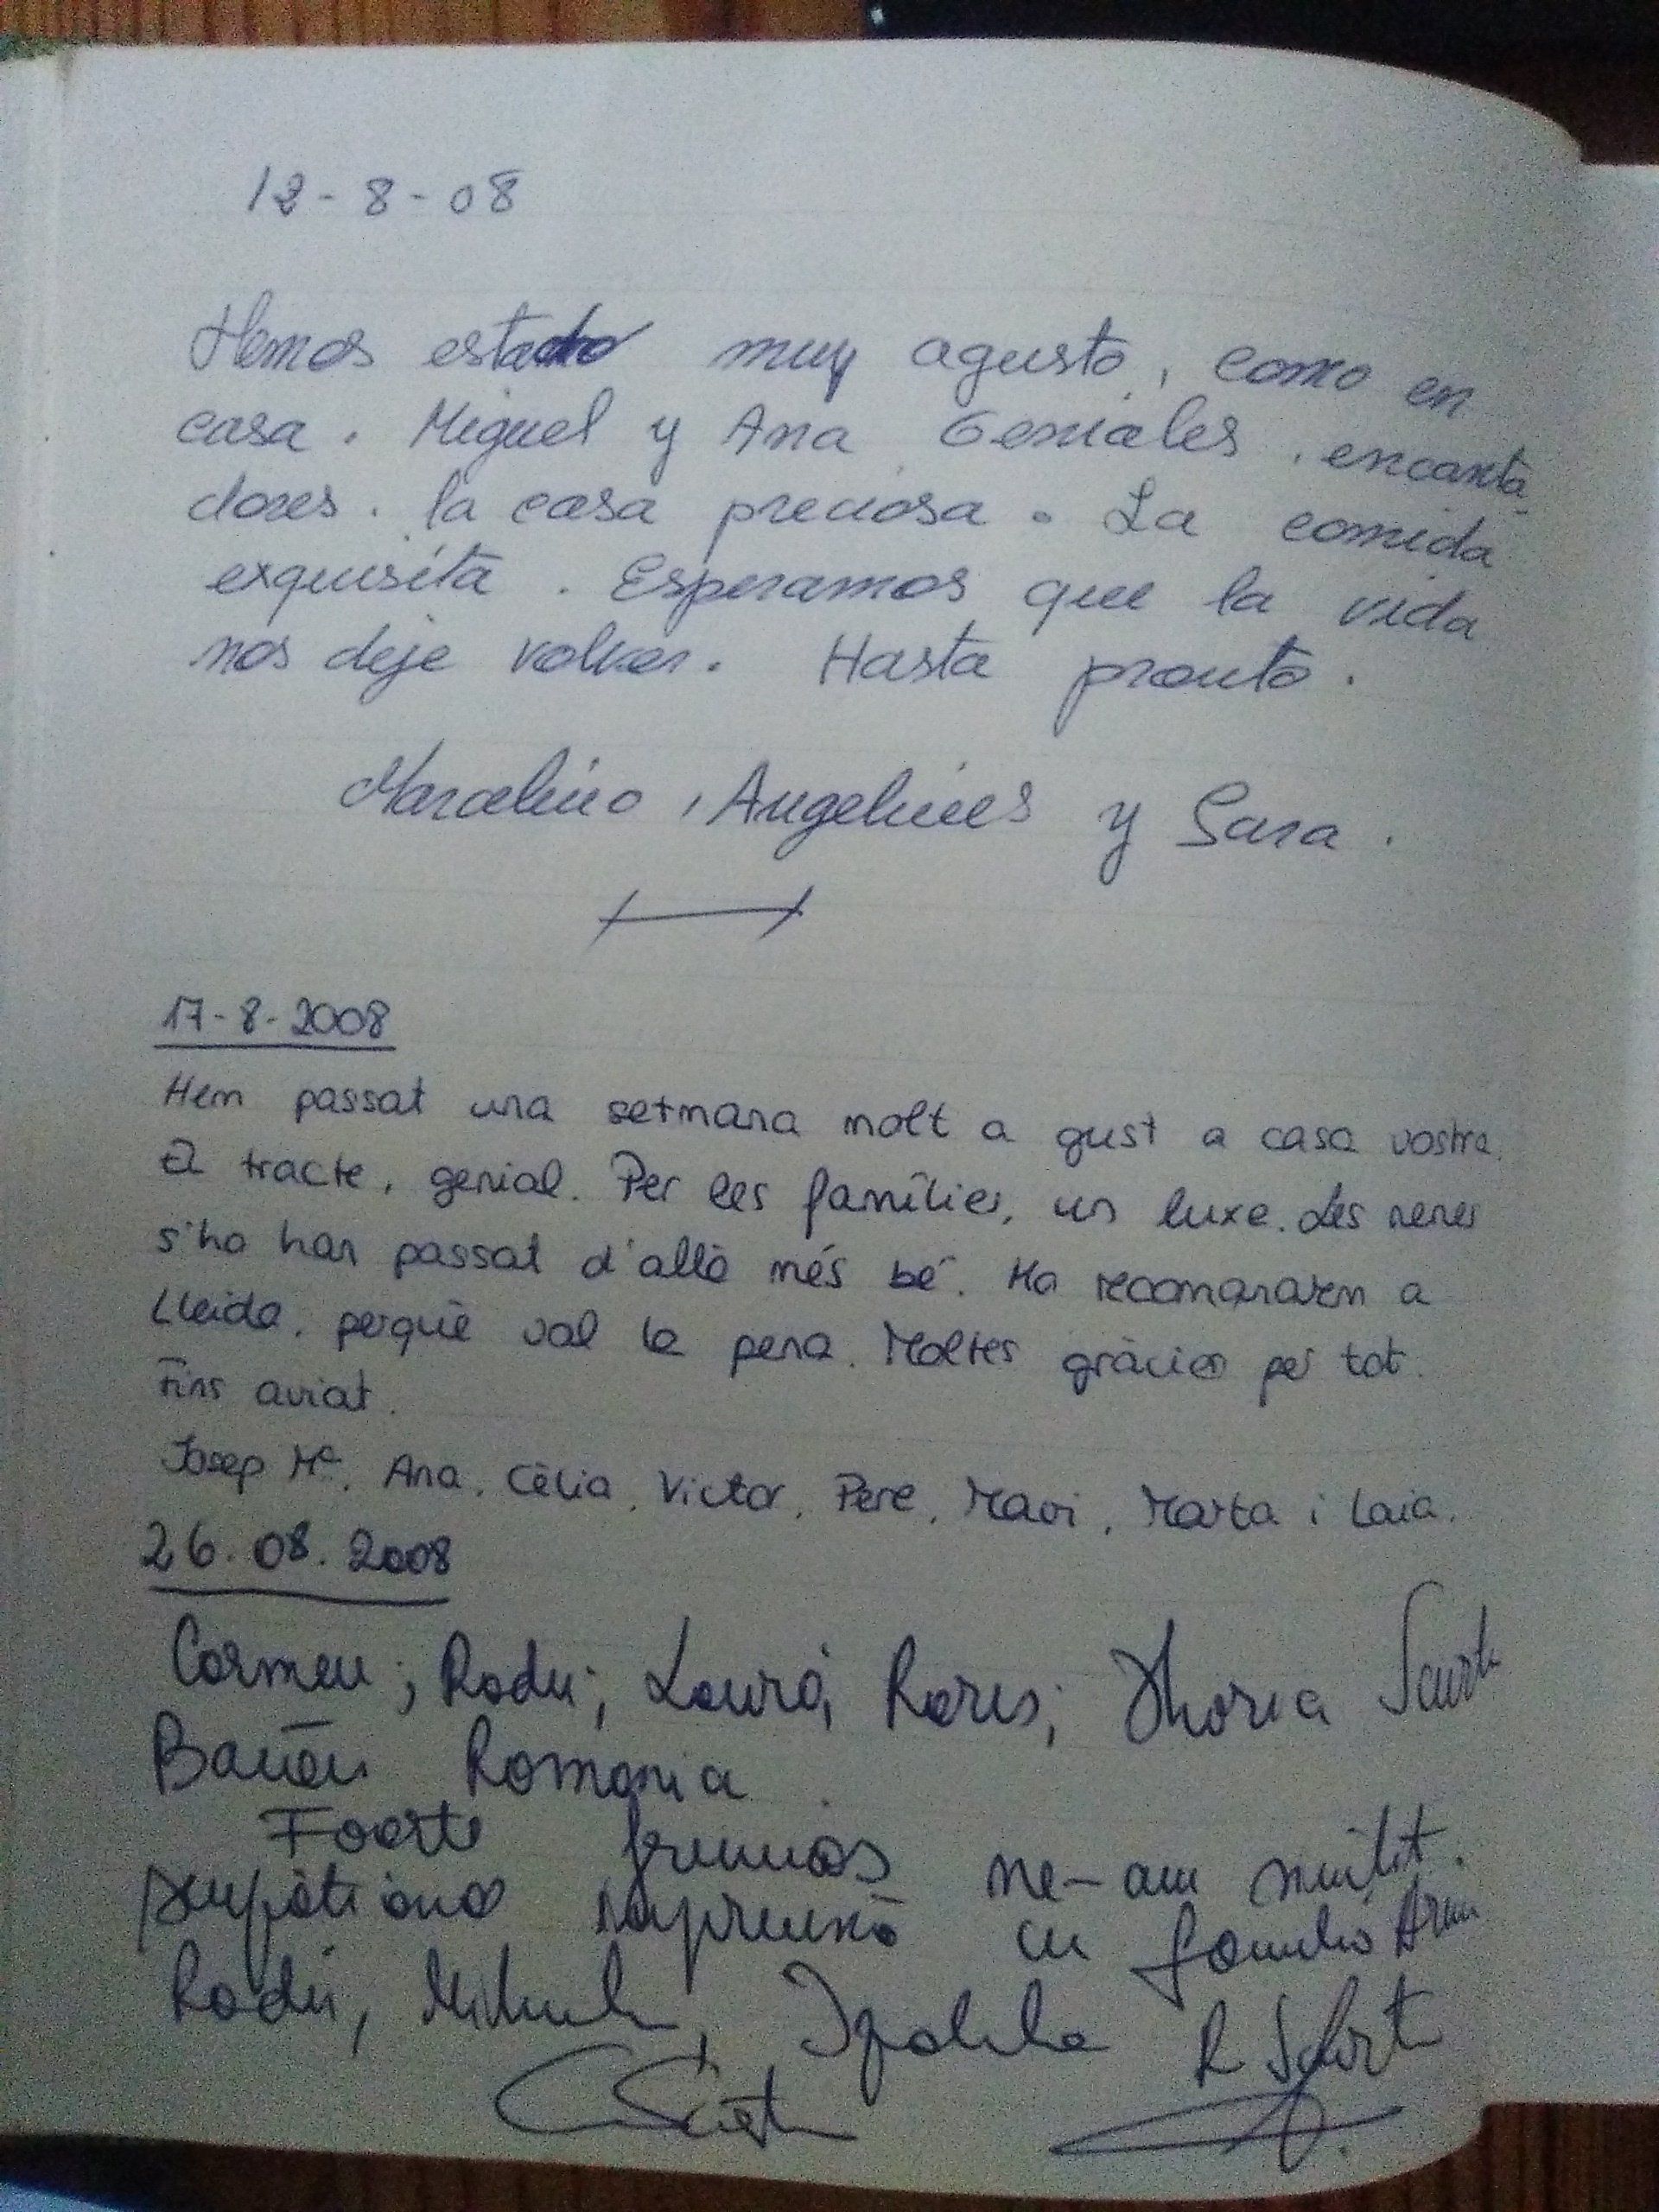 12-8-08
Hemos estado muy agusto, como en
casa. Miguel y Ana Geniales, encanta
dores. la casa preciosa. La comida
exquisita. Esperamos que la vida
nos deje volver. Hasta pronto.
Marcelino, Angelines y Sara.
17-8-2008
Hem passat una setmana molt a gust a casa vostra.
El tracte, genial. Per les famílies, un luxe. Les nenes
s'ho han passat d'allò més bé. Ho recomanarem a
Lleida, perquè val la pena. Moltes gràcies per tot.
Fins aviat.
Josep Mª, Ana, Cèlia, Victor, Pere, Mavi, Marta i Laia.
26.08.2008
Carmen; Radu; Laura; Rares; Horia
Romania
Foarte frumos ne-am simtit.
impreună cu familia
Radu,